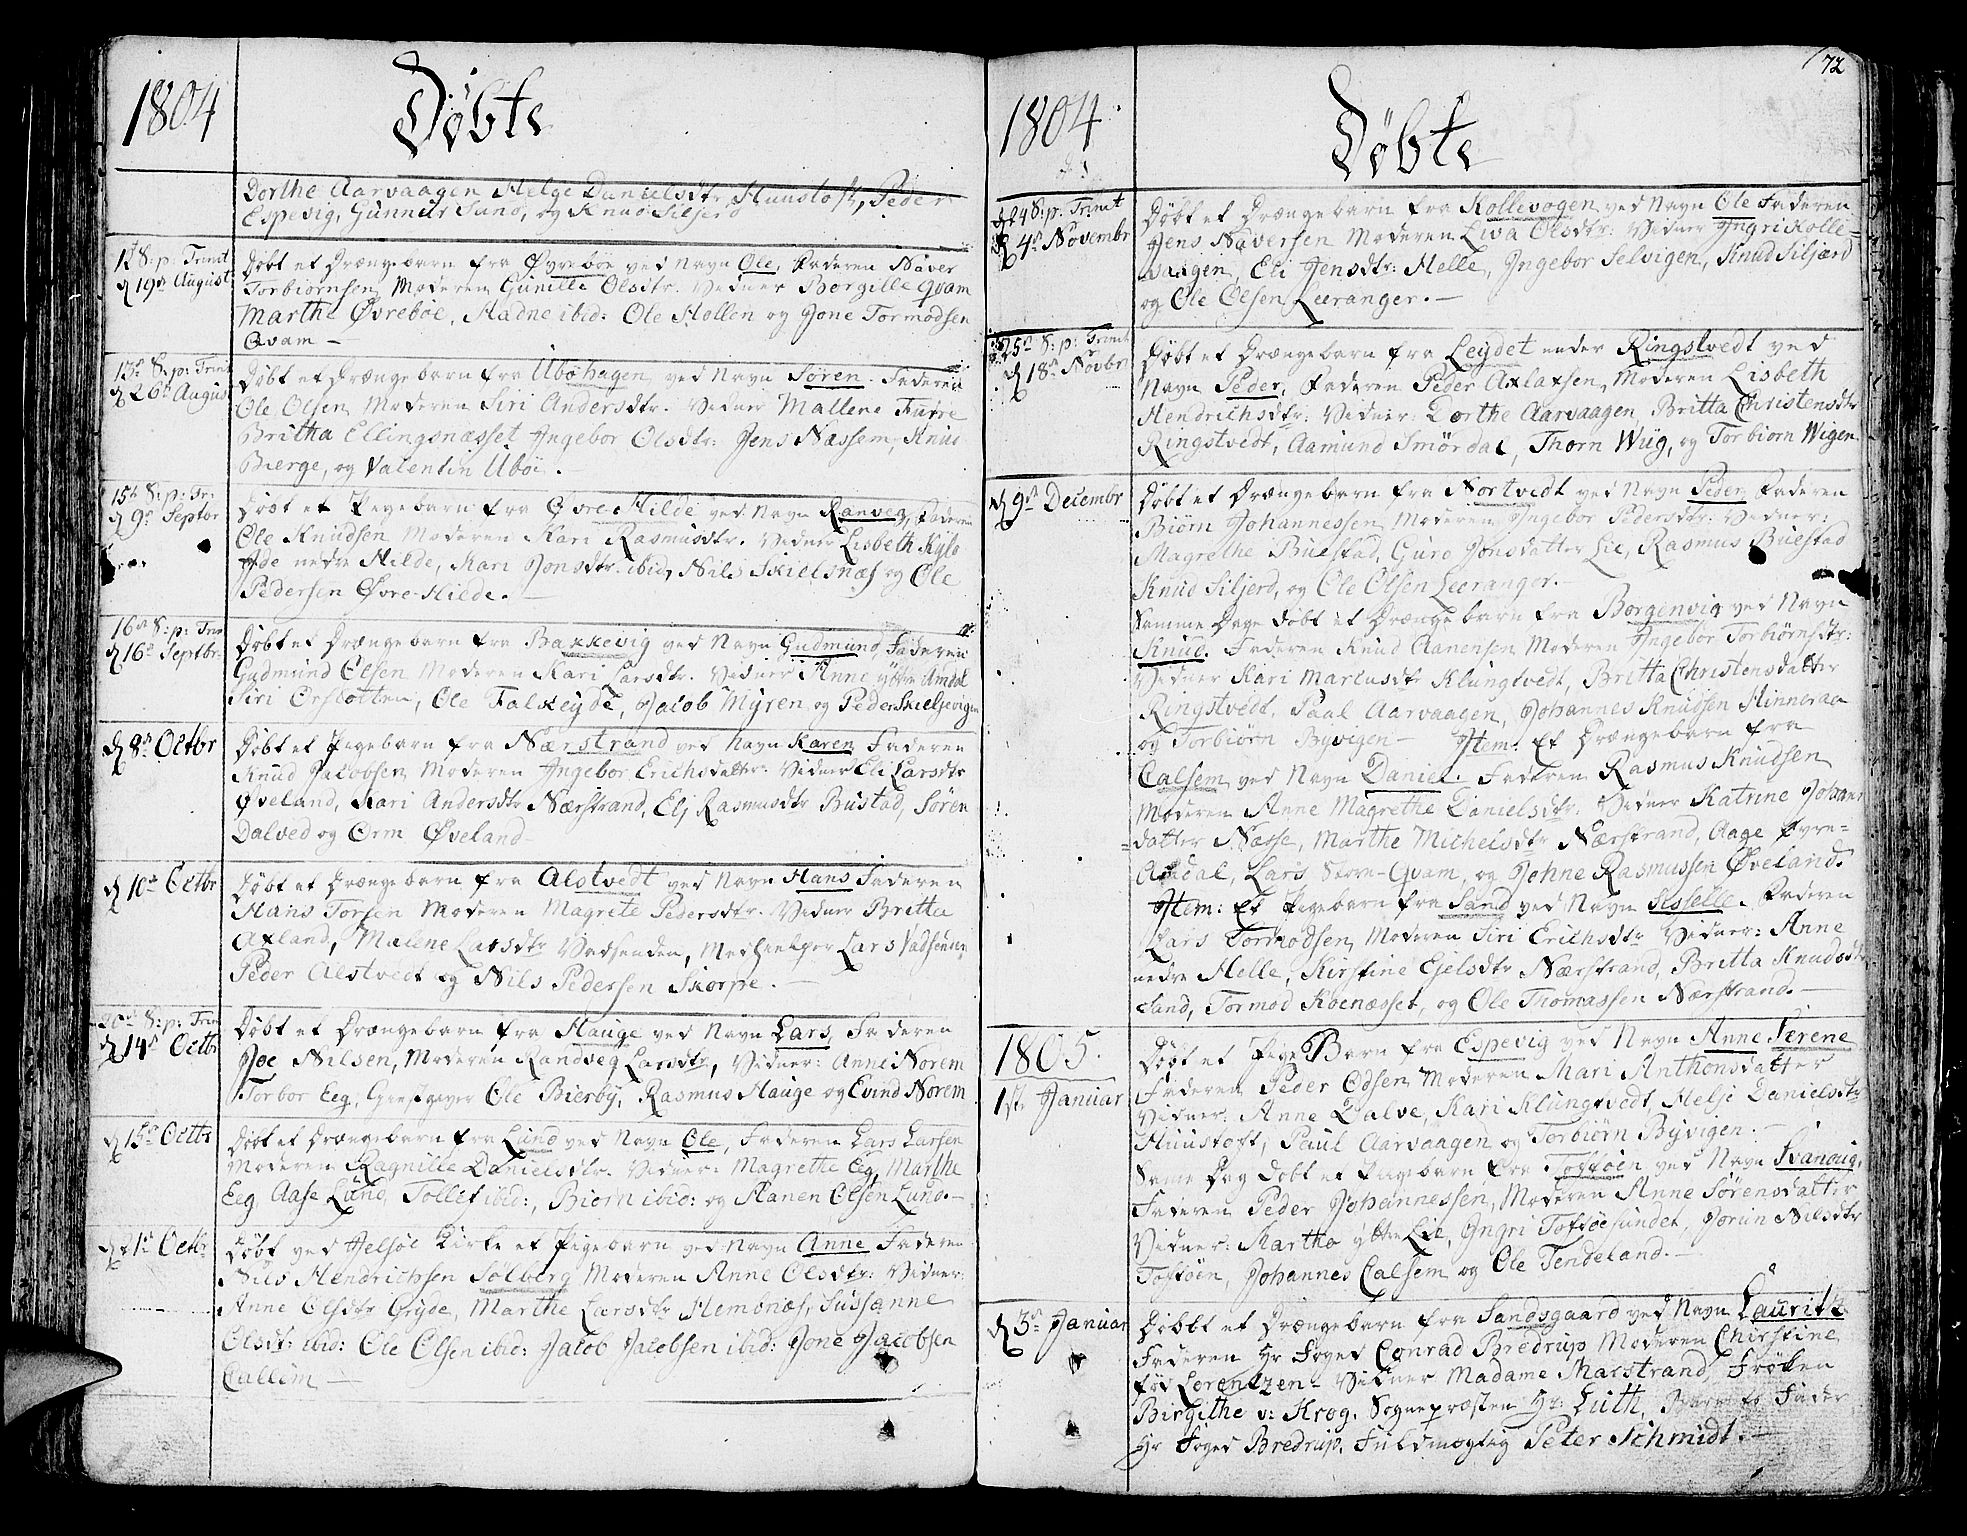 1804
Døbte
Dorthe Aarvaagen Helge Danielsdtr Huustoft, Peder
Espevig, Gunner Sund, og Knud Siljerd
12 S: p: Trinit
d 19de August
Døbt et Drængebarn fra Øvrebøe ved Navn Ole, Faderen Naver
Torbiørnsen, Moderen Gunille Olsdtr. Vidner Borgille Qvam
Marthe Øvreboe, Hadne ibid: Ole Hollen og Jone Tormodsen
Qvam –
13de S: p: Trinit
d 26de August
Døbt et Drængebarn fra Ubøhagen, ved Navn Søren. Faderen
Ole Olsen Moderen Siri Andersdtr. Vidner Mallene Furre
Britha Ellingsnæsset Ingebor Olsdtr: Jens Næssem, Knud
Bierge, og Valentin Ubøe. –
15de S: p: Tr:
d 9de Septbr
Døbt et Pigebarn fra Øvre Hilde ved Navn Ranveg, Faderen
Ole Knudsen Moderen Kari Rasmusdtr. Vidner Lisbeth
Ade nedre Hilde, Kari Jonsdtr. ibid, Nils Skielsnæs og Ole
Pedersen Øvre-Hilde. –
16de S: p: Trin
d 16de Septbr.
Døbt et Drængebarn fra Bakkevig ved Navn Gudmund, Faderen
Gudmund Olsen Moderen Kari Larsdtr. Vidner Anne ÿttre Amdal
Siri Ørstotten, Ole Falkeyde, Jacob Mÿren og Peder Skieljevigen
d 8de Octbr
Døbt et Pigebarn fra Nærstrand ved Navn Karen Faderen
Knud Jacobsen Moderen Ingebor Erichsdatter. Vidner Eli Larsdtr
Øveland, Kari Andersdtr Nærstrand, Elj Rasmusdtr Bustad, Søren
Dalved og Orm Øveland –
d 10de Octbr
Døbt et Drængebarn fra Alstvedt ved Navn Hans Faderen
Hans Torsen Moderen Magrete Pedersdtr. Vidner Britta
Axland, Malene Larsdtr Vadsenden, Medhielper Lars Vadsenden
Peder Alstvedt og Nils Pedersen Skorpe. –
20de S: p: Trin
d 14de Octbr
Døbt et Drængebarn fra Hauge ved Navn Lars, Faderen
Joe Nilsen, Moderen Randveg Larsdtr, Vidner: Anne Norem
Torbor Eeg, Giestgiver Ole Bierby, Rasmus Hauge og Evind Norem
d 15de Octbr
Døbt et Drængebarn fra Lund ved Navn Ole, Faderen Lars Larsen
Moderen Ragnille Danielsdtr. Vidner: Magrethe Eeg, Marthe
Eeg Aase Lund, Tollef ibid:, Biørn ibid: og Hanen Olsen Lund. –
d 21de Octbr
Døbt ved Jelsøe Kirke et Pigebarn ved Navn Anne Faderen
Nils Hendrichsen Solberg Moderen Anne Olsdtr: Vidner:
Anne Olsdtr Gryde, Marthe Larsdtr Hembnæs, Sussanne
Olsdtr: ibid: Ole Olsen ibid: Jacob Jacobsen ibid: Jone Jacobsen
Callem –
72
1804
Døbte
d 24 S: p: Trinit
d 4de Novembr
Døbt et Drængebarn fra Kollevogen ved Navn Ole Faderen
Jens Naversen Moderen Liva Olsdtr: Vidner Ingri Kolle-
vaagen, Eli Jensdtr: Helle, Ingebor Selvigen, Knud Siljærd
og Ole Olsen Leeranger. –
25de S: p: Trinit
d 18de Novbr
Døbt et Drængebarn fra Leydet under Ringstvedt ved
Navn Peder, Faderen Peder Axlaxsen, Moderen Lisbeth
Hendrichsdtr: Vidner: Dorthe Aarvaagen, Britta Christensdtr
Ringstvedt, Aamund Smørdal, Thorn Wiig, og Torbiorn Wigen
d 9de Decembr
Døbt et Drængebarn fra Nortvedt ved Navn Peder, Faderen
Biørn Johannessen, Moderen Ingebor Pedersdtr: Vidner:
Magrethe Buestad, Guro Jonsdatter Lie, Rasmus Buestad
Knud Siljerd, og Ole Olsen Leeranger. –
Samme Dage døbt et Drængebarn fra Borgenvig ved Navn
Knud. Faderen Knud Aanensen Moderen Ingebor Torbiørnsdtr:
Vidner Kari Markusdtr Klungtvedt, Britta Christensdatter
Ringstvedt, Paal Aarvaagen, Johannes Knudsen Hinneraa
og Torbiørn Byvigen – Item: Et Drængebarn fra
Calsem ved Navn Daniel. Faderen Rasmus Knudsen
Moderen Anne Magrethe Danielsdtr. Vidner Katrine Johans
datter Næsse, Marthe Michelsdtr Nærstrand, Aage Øvre-
Amdal, Lars Store-Qvam, og Johne Rasmussen Øveland.
Item: Et Pigebarn fra Sand ved Navn Sisselle. Faderen
Lars Tormodsen, Moderen Siri Erichsdtr Vidner: Anne
nedre Helle, Kirstine Ejelsdtr Nærstrand, Britta Knudsdtr
Sand, Tormod Koenæsset, og Ole Thomassen Nærstrand. –
1805.
1ste Januar
Døbt et Pige Barn fra Espevig ved Navn Anne Serene
Faderen Peder Odsen, Moderen Mari Anthonsdatter
Vidner: Anne Dalve, Kari Klungtvedt, Helje Danielsdtr
Huustoft, Paul Aarvaagen og Torbiørn Byvigen. –
Same Dag døbt et Pigebarn fra Toftøen ved Navn Svanoug,
Faderen Peder Johannessen, Moderen Anne Sørensdatter
Vidner: Martha ÿttre Lie, Ingri Toftøesundet, Jorun Nilsdtr
Toftøen, Johannes Calsem og Ole Tendeland. –
d 3de Januar
Døbt et Drængebarn fra Sandsgaard ved Navn Lauritz
Faderen Hr Foged Conrad Bredrup Moderen Chirstine
fød Lorentzen – Vidner Madame Marstrand, Frøken
Birgithe v: Krog, Sognepræsten Hr: Lúth, Barnets Fader
Hr Foged Bredrup, Fuldmægtig Peter Schmidt. –